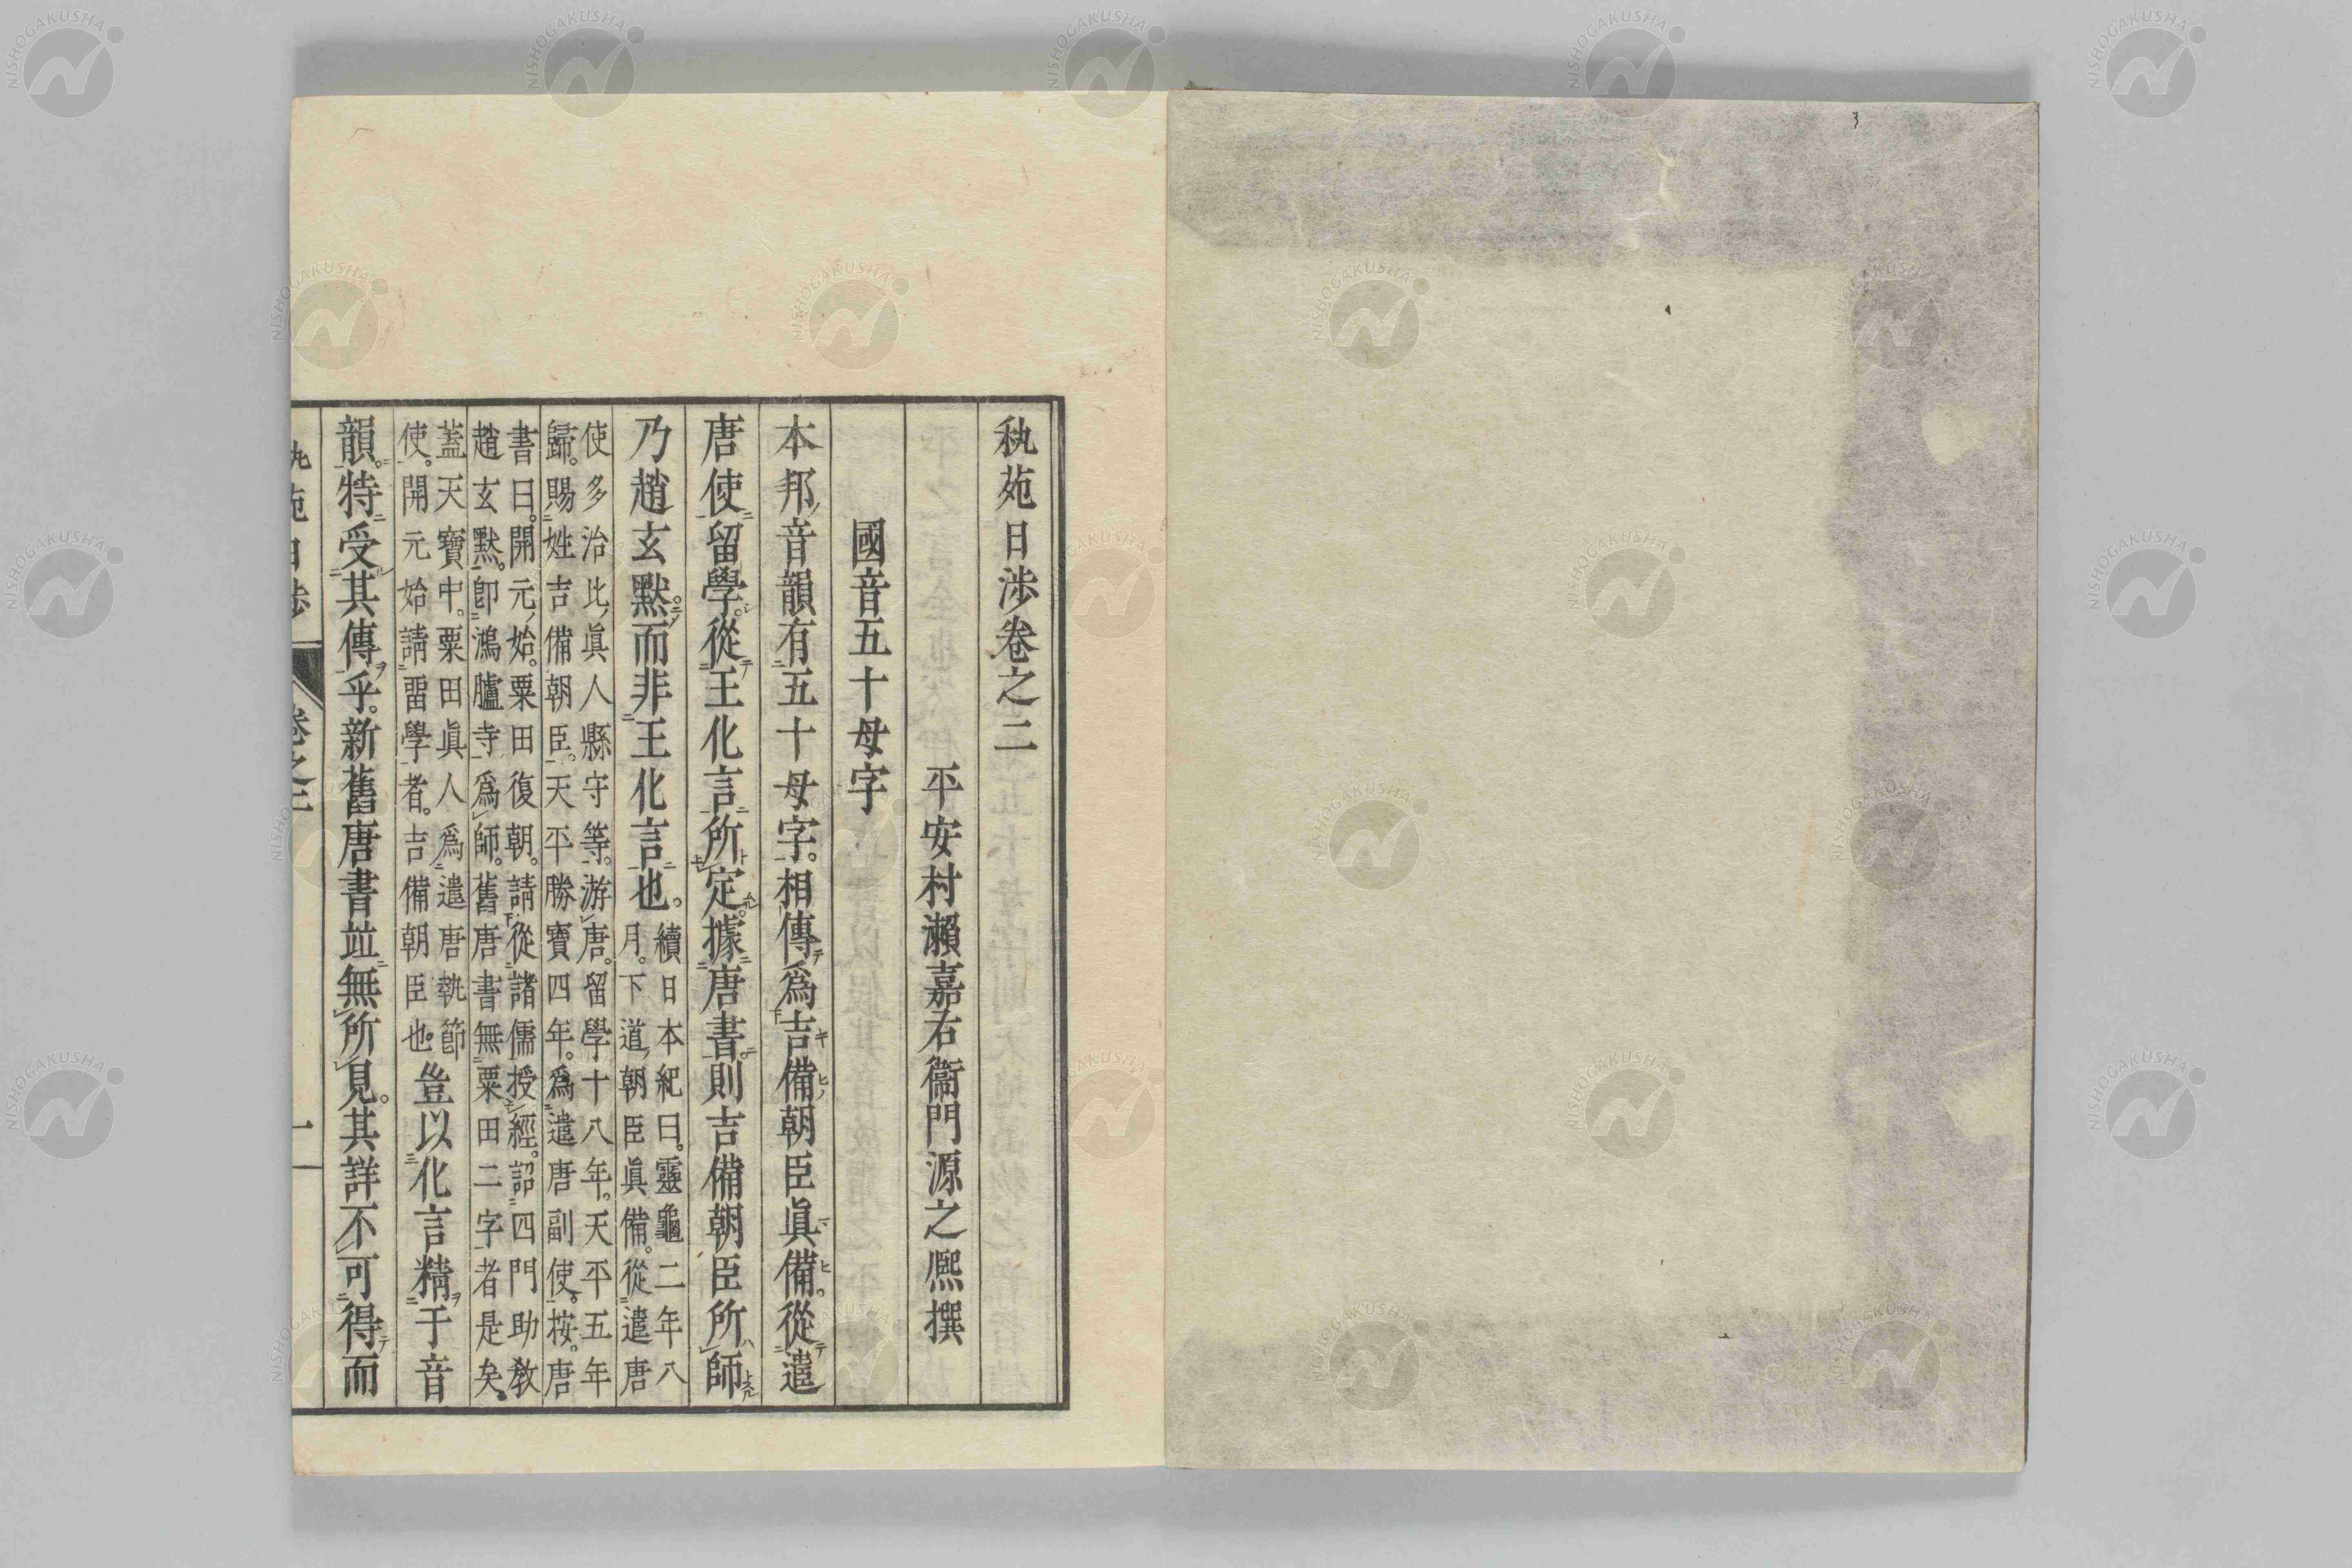 秇苑日渉卷之二
平安村瀨嘉右衞門源之熙撰
國音五十母字
本邦音韻有五十母字。相傳爲吉備朝臣眞備。從遣
唐使留學。從王化言所定。據唐書。則吉備朝臣所師
乃趙玄默。而非王化言也。續日本紀曰。靈龜二年八
月。下道朝臣眞備。從遣唐
使多治比眞人縣守等。游唐。留學十八年。天平五年
歸。賜姓吉備朝臣。天平勝寶四年。爲遣唐副使。按。唐
書曰。開元始。粟田復朝。請從諸儒授經。詔四門助敎
趙玄默。卽鴻臚寺爲師。舊唐書無粟田二字者是矣。
蓋天寶中。粟田眞人爲遣唐執節
使。開元始請留學者。吉備朝臣也。豈以化言精于音
韻。特受其傳乎。新舊唐書竝無所見。其詳不可得而
卷之二
一
NISHOGAKUSHA